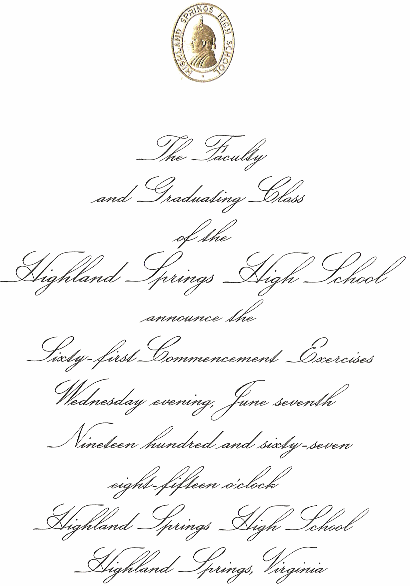 HIGHLAND SPRINGS HIGH SCHOOL
The Faculty
and Graduating Class
of the
Highland Springs High School
announce the
Sixty-first Commencement Exercises
Wednesday evening, June seventh
Nineteen hundred and sixty-seven
eight-fifteen o'clock
Highland Springs High School
Highland Springs, Virginia